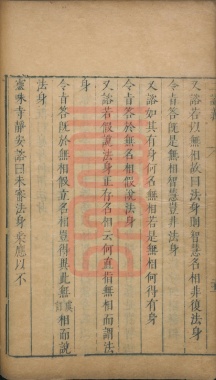 又諮若以無相故曰法身則智慧名相非復法身
令旨答既是無相智慧豈非法身
又諮如其有身何名無相若是無相何得有身
令旨答於無名相假說法身
又諮若假說法身正存名相云何直指無相而謂法
身
令旨答既於無相假立名相豈得異此無相而說
法身
靈味寺靜安諮曰未審法身乘應以不